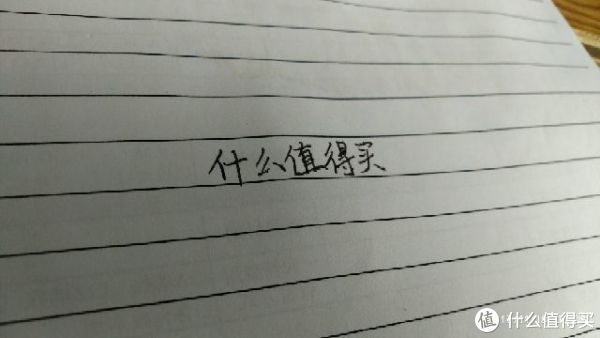 什么值得买
值 什么值得买